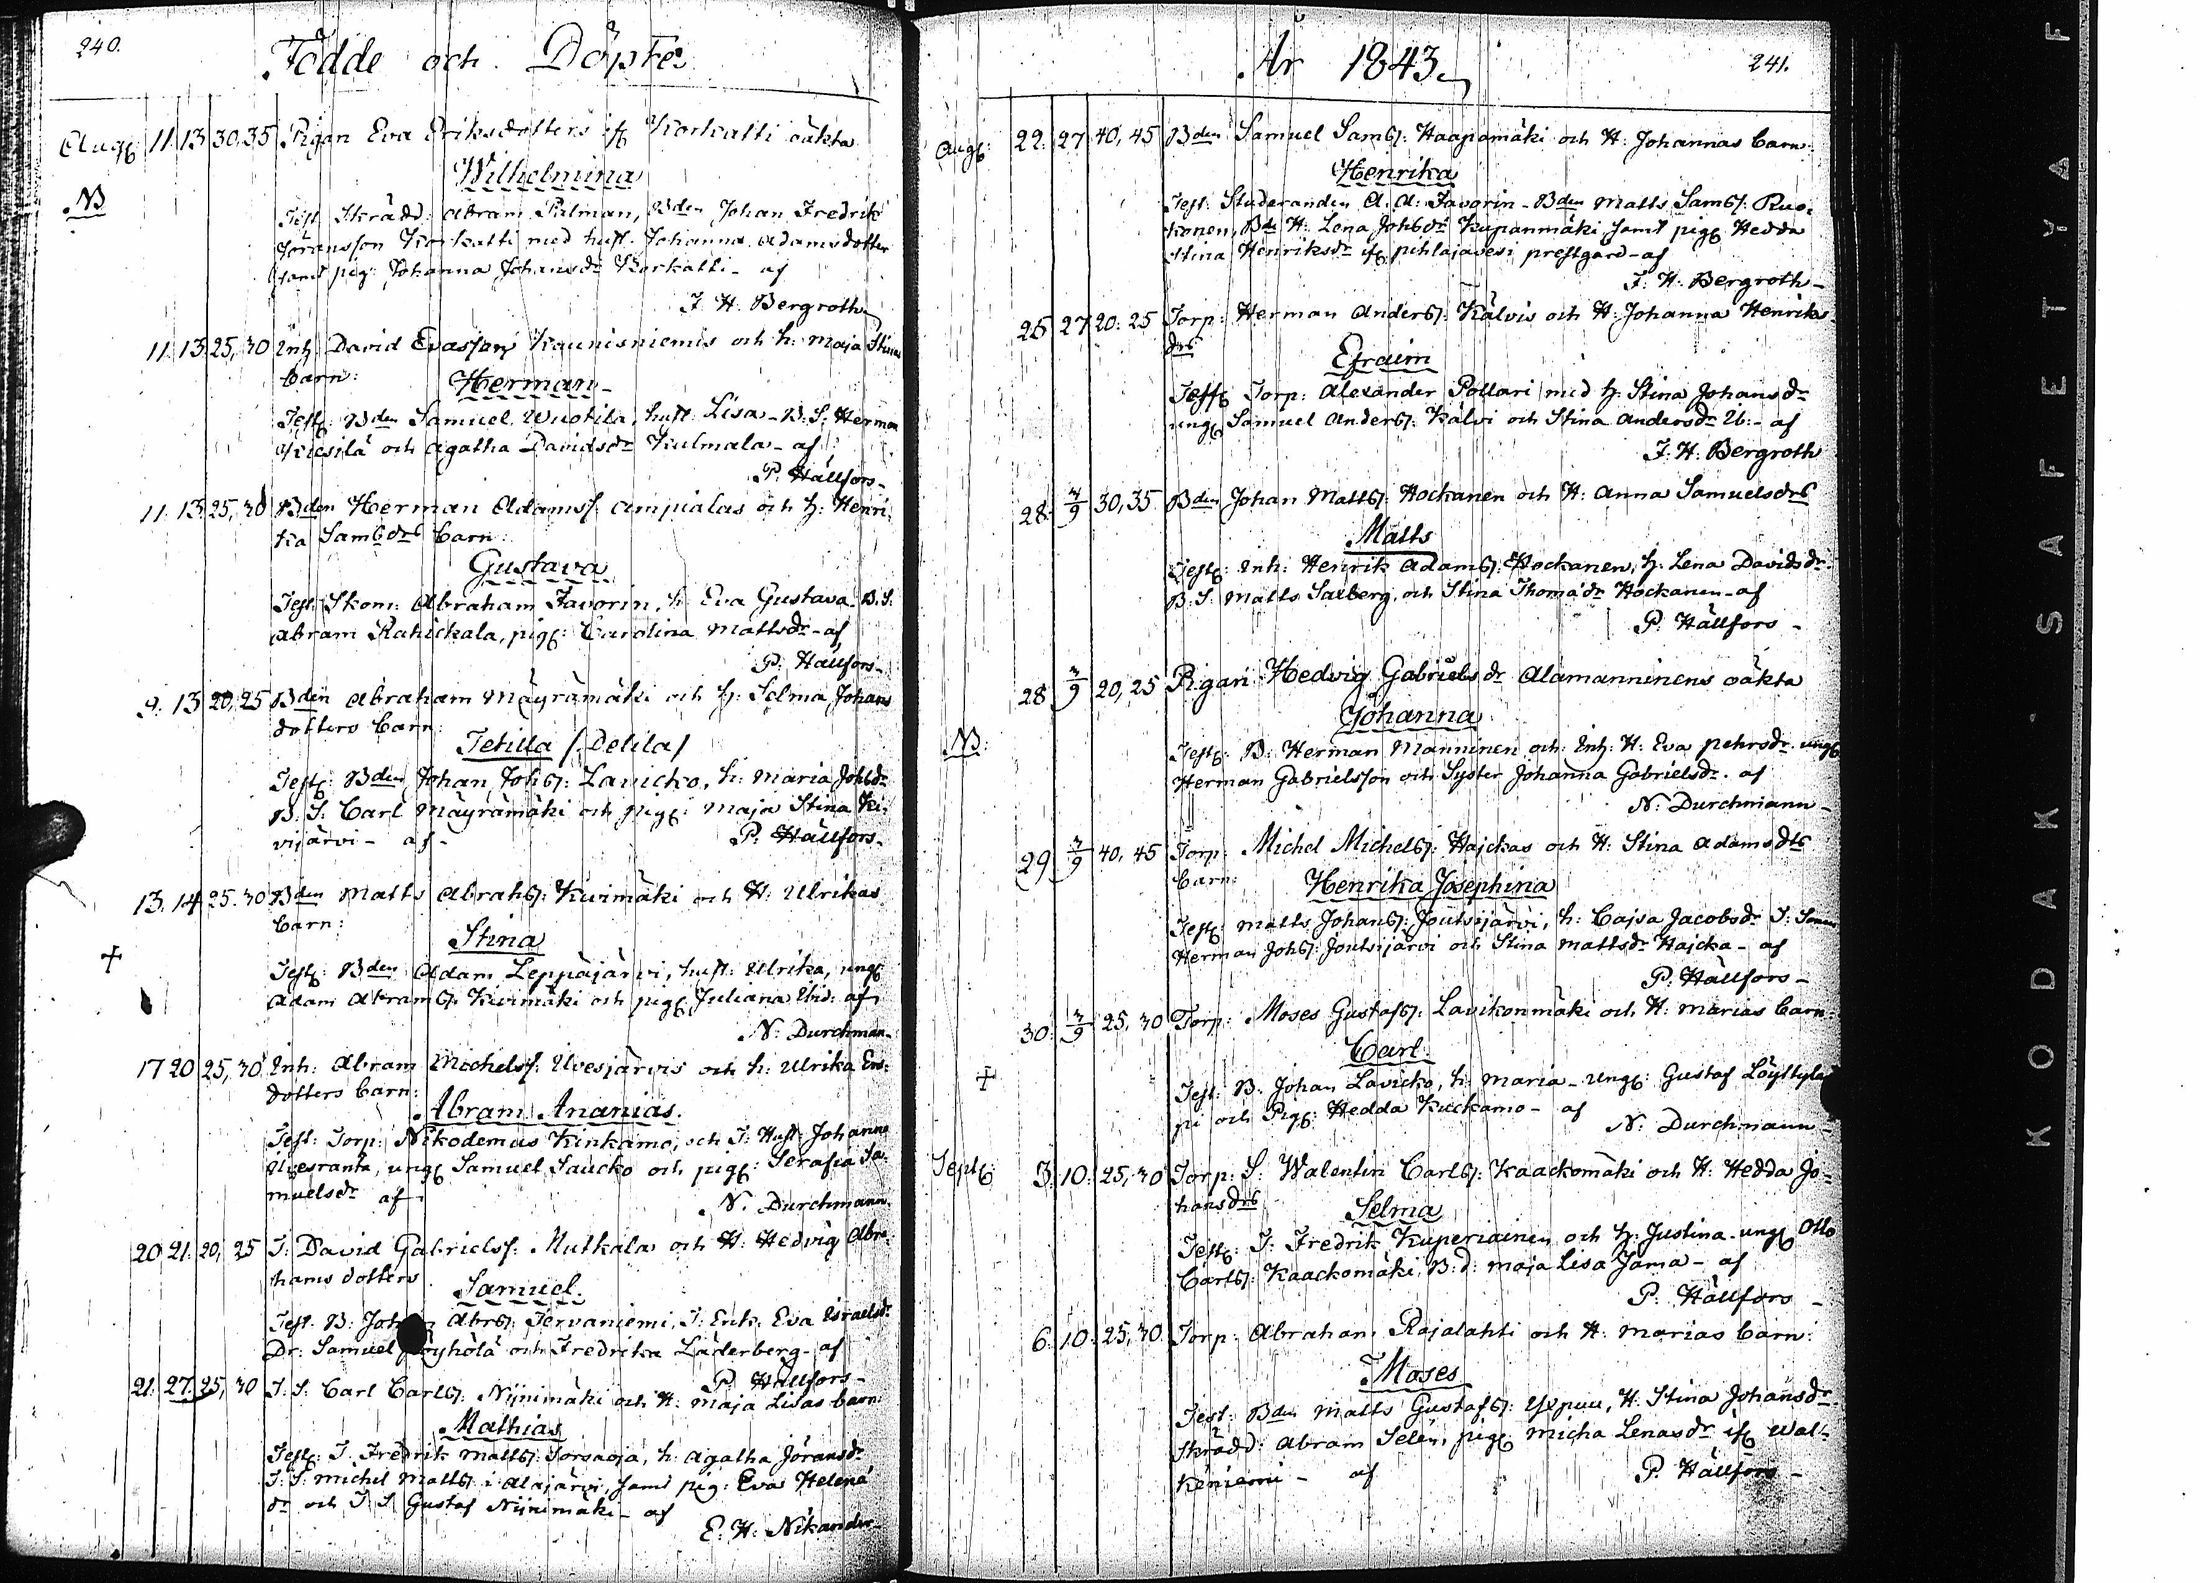 240.
Födde och Döpte
Aug: 11. 13 30,35 Pigan Eva Eriksdotters if Korkatti oäkta
Wilhelmina
NB
Test: Skrädd: Abram Palman, Bden Johan Fredrik
Joransson Korkatti med hust. Johanna Adamsdotter
samt pig: Johanna Johansdr Korkatti - af
J. H. Bergroth
11. 13 25,30 Inh: David Evasson Kaunisniemis och h: Maja Stinas
barn:
Herman
Test: Bden Samuel Wuotila, hust. Lisa - B. S. Herman
och Agatha Davidsdr Kulmala - af
P. Hällfors -
11. 13 25,30 Bden Herman Adamss. Ampialas och h: Henri-
ka Samsdrs barn:
Gustava
Test: Skom: Abraham Favorin, h: Eva Gustava - B. S.
Abram Rahickala, pig: Carolina Mattsdr - af
P. Hällfors -
9. 13 20,25 Bden Abraham Mäyrämäki och h: Selma Johans
dotters barn:
Tetilla /Delila/
Test: Bden Johan Johss: Lavicko, h: Maria Johsdr
B. S. Carl Mäyrämäki och pig: Maja Stina Ki-
vijärvi - af - P. Hällfors -
13. 14 25.30 Bden Matts Abrahs: Kivimäki och H: Ulrikas
barn:
Stina
+
Test: Bden Adam Leppäjärvi, hust: Ulrika, ung:
Adam Abrams: Kivimäki och pig: Juliana ibid: af
N. Durchman -
17 20 25,30 Inh: Abram Michelss: Ulvesjärvis och h: Ulrika Ers-
dotters barn:
Abram Ananias.
Test: Torp: Nikodemus Kinkamo, och I. Hust: Johanna
ung: Samuel Saucko och pig: Serafia Sa-
muelsdr af
N. Durchmann.
20 21. 20, 25 I: David Gabrielss: Mutkala och H: Hedvig Abra-
hams dotters
Samuel.
Test. B: Johan Abrs: Tervaniemi, I. Enk. Eva Israelsdr
Dr: Samuel och Fredrika Läderberg - af
P. Hällfors -
21. 27. 25, 30 I. S. Carl Carls: Nynimäki och H: Maja Lisas barn:
Mathias
Test: I. Fredrik Matts: Sorsaoja, h: Agatha Joransdr
I. S. Michel Matts: i Alajärvi, samt pig: Eva Helena
dr och I. S. Gustaf Nynimäki - af
E. H. Nikander -
År 1843. 241.
Aug: 22. 27 40, 45 Bden Samuel Sams: Haapamäki och H: Johannas barn:
Henrika
Test: Studeranden A. A. Favorin - Bden Matts Sams: Ruo-
konen, Bde H: Lena Johsdr Kupanmäki samt pig: Hedda
Stina Henriksdr if Pihlajavesi prestgard - af
J. H. Bergroth -
25 27 20. 25 Torp: Herman Anders: Kälvis och H: Johanna Henriks
drs
Efraim
Test: Torp: Alexander Pollari med h: Stina Johansdr
ung: Samuel Anders: Kälvi och Stina Andersdr Ib: - af
J. H. Bergroth
28. 3/9 30,35 Bden Johan Matts: Hockanen och H: Anna Samuelsdrs
Matts
Test: Inh: Henrik Adams: Hockanen, h: Lena Davidsdr
B. S. Matts Saxberg, och Stina Thomasdr Hockanen - af
P. Hällfors -
28 3/9 20,25 Pigan Hedvig Gabrielsdr Alamanninens oäkta
Johanna
NB:
Test: B: Herman Manninen och Inh: H: Eva Pehrsdr ung:
Herman Gabrielsson och Syster Johanna Gabrielsdr. af
N: Durchmann -
29 3/9 40, 45 Torp: Michel Michels: Hajckas och H: Stina Adamsdrs
barn:
Henrika Josephina
Test: Matts Johans: Joutsijärvi, h: Cajsa Jacobsdr
Herman Johs: Joutsijärvi och Stina Mattsdr Hajcka - af
P. Hällfors -
30. 3/9 25, 30 Torp: Moses Gustafs: Lavikonmäki och H: Marias barn:
Carl.
+
Test: B. Johan Lavicko, h: Maria - ung: Gustaf
pi och Pig: Hedda Kuckamo - af N: Durchmann -
Sept: 3. 10. 25,30 Torp: S. Walentin Carls: Kaackomäki och H: Hedda Jo-
hansdrs
Selma
Test: I. Fredrik Kuperiainen och h: Justina - ung: Otto
Carls: Kaackomäki, B: d: Maja Lisa Jama - af
P. Hällfors -
6. 10. 25,30 Torp: Abraham Rajalahti och H: Marias barn:
Moses
Test: Bden Matts Gustafs: Yxpuu, H: Stina Johansdr
Skrädd: Abram Selen, pig: Micha Lenasdr if Wal-
keniemi - af P. Hällfors -
KODAK · SAFETY A F